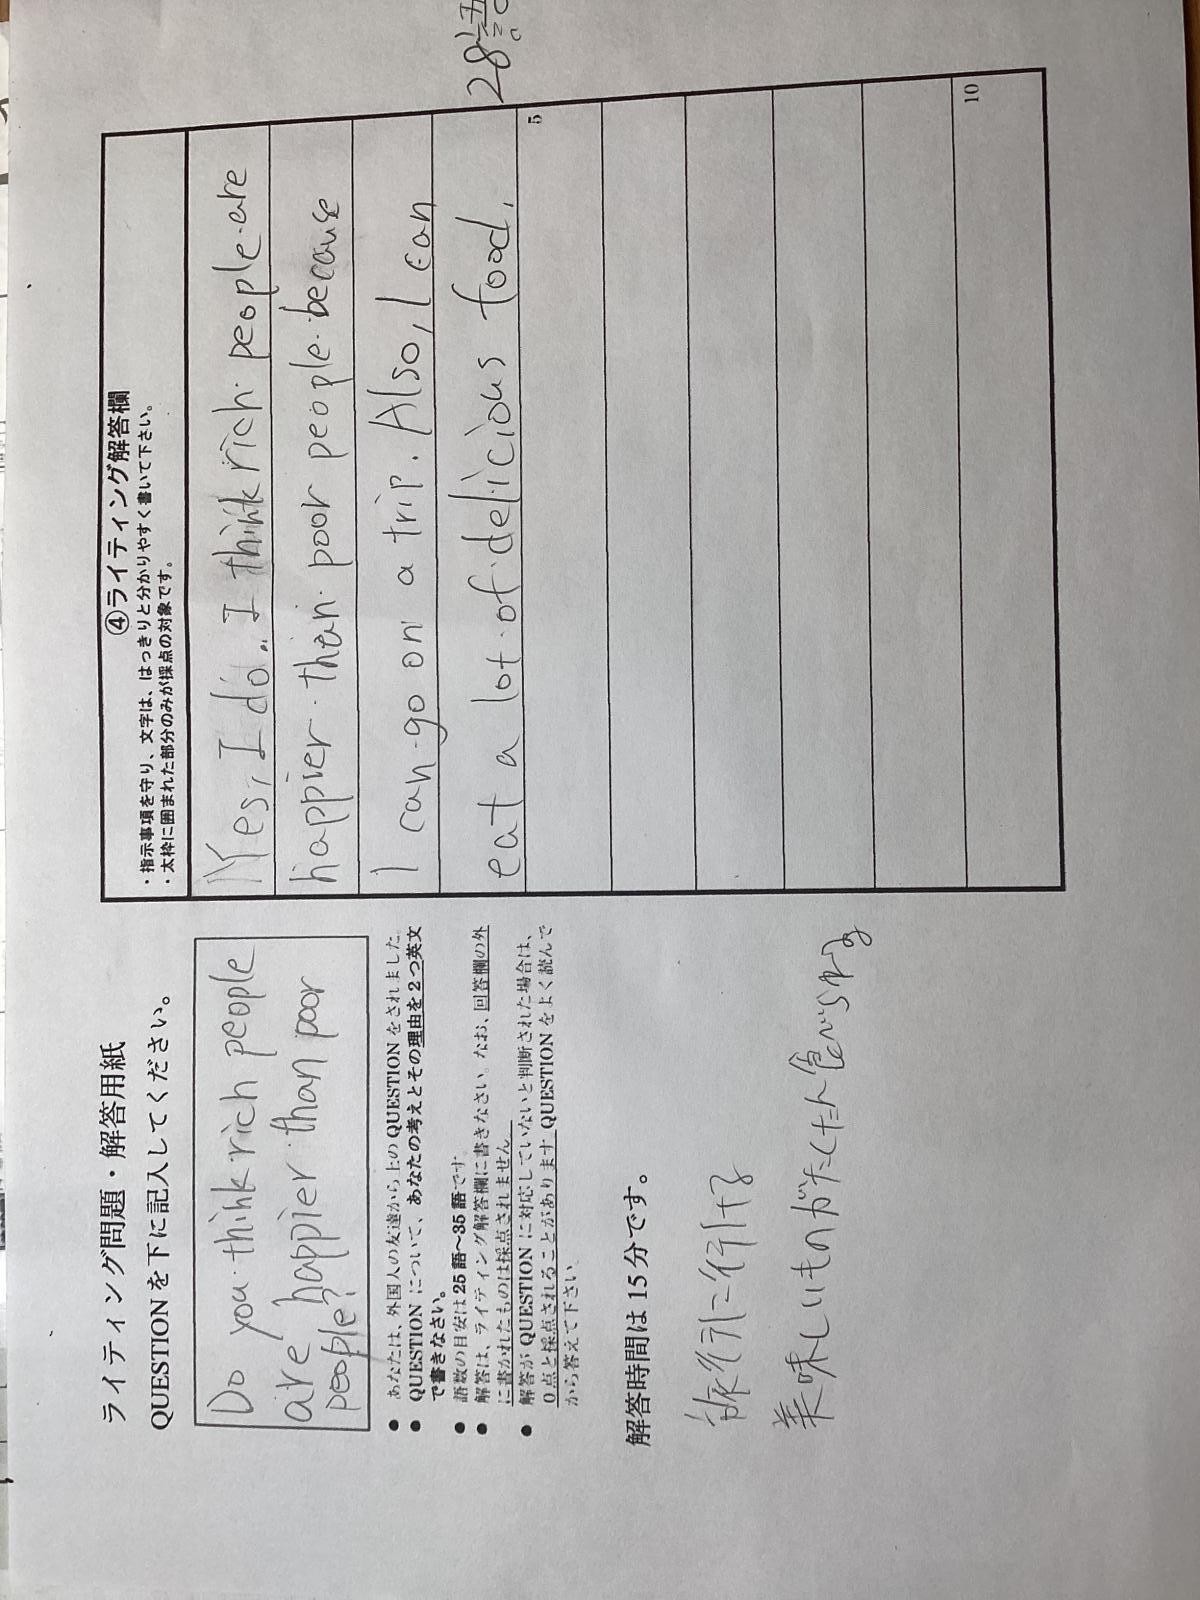 ライティング問題・解答用紙
QUESTIONを下に記入してください。
Do you think rich people
are happier than poor
people?
● あなたは、外国人の友達から上の QUESTION をされました。
● QUESTION について、あなたの考えとその理由を2つ英文
で書きなさい。
● 語数の目安は 25 語～35 語です。
● 解答は、ライティング解答欄に書きなさい。なお、回答欄の外
に書かれたものは採点されません。
● 解答が QUESTION に対応していないと判断された場合は、
0点と採点されることがあります。QUESTION をよく読んで
から答えて下さい。
解答時間は 15 分です。
旅行に行ける
美味しいものがたくさん食べられる
④ライティング解答欄
・指示事項を守り、文字は、はっきりと分かりやすく書いて下さい。
・太枠に囲まれた部分のみが採点の対象です。
Yes, I do. I think rich people are
happier than poor people because
I can go on a trip. Also, I can
eat a lot of delicious food.
5
10
28語